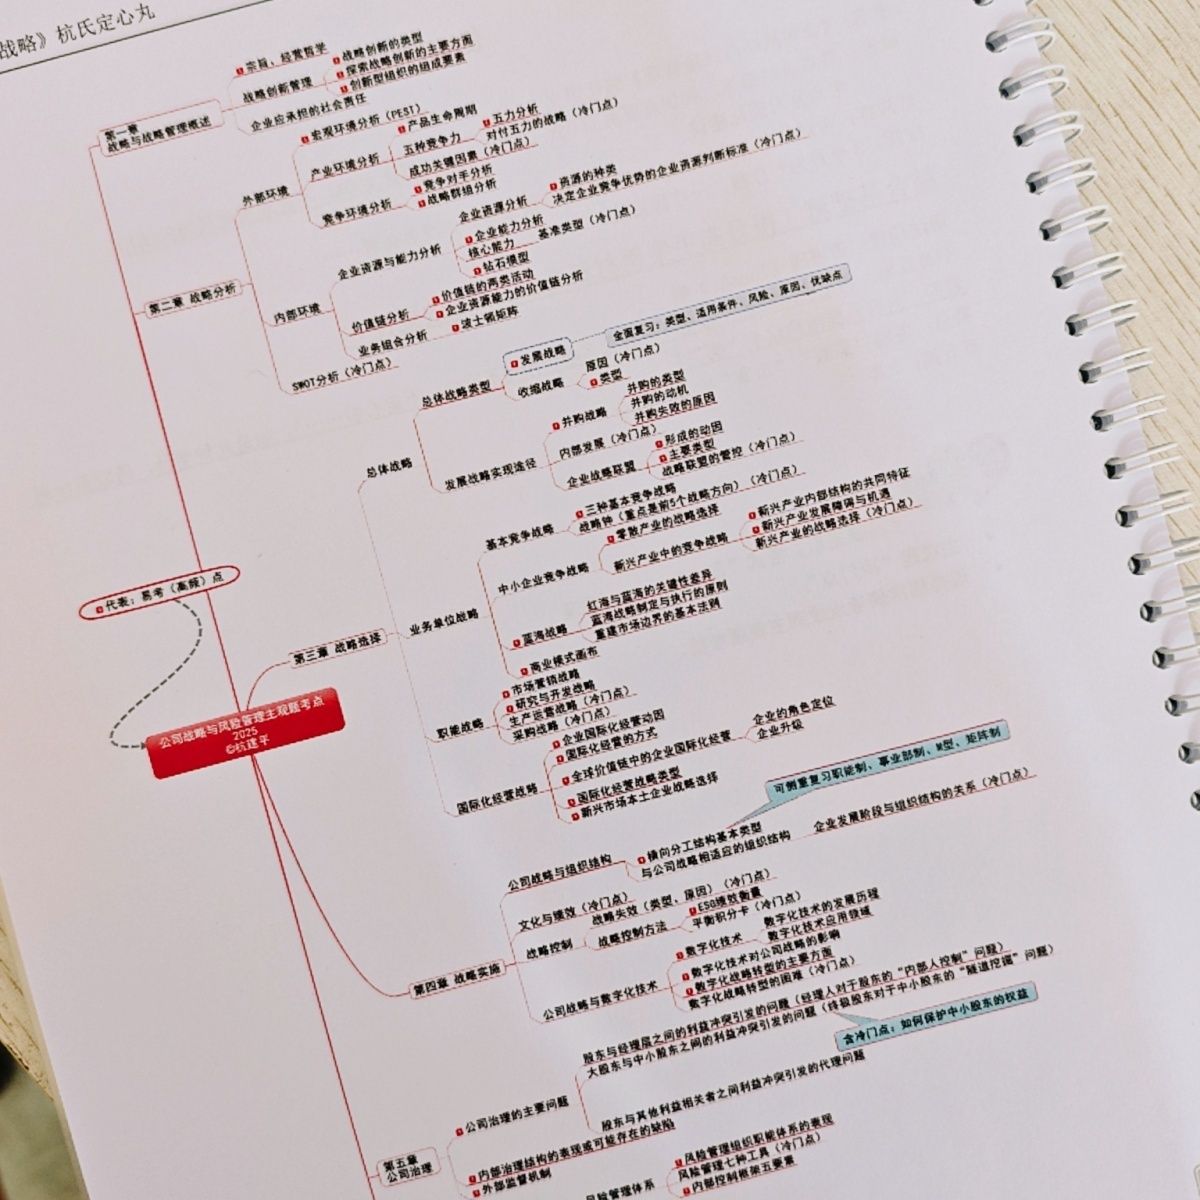 战略》杭氏定心丸
第一章
战略与战略管理概述
宗旨、经营哲学
战略创新管理
战略创新的类型
探索战略创新的主要方面
创新型组织的组成要素
企业应承担的社会责任
第二章 战略分析
外部环境
宏观环境分析(PEST)
产业环境分析
产品生命周期
五种竞争力
五力分析
对付五力的战略(冷门点)
成功关键因素(冷门点)
竞争环境分析
竞争对手分析
战略群组分析
内部环境
企业资源与能力分析
企业资源分析
资源的种类
决定企业竞争优势的企业资源判断标准(冷门点)
企业能力分析
核心能力
基准类型(冷门点)
钻石模型
价值链分析
价值链的两类活动
企业资源能力的价值链分析
业务组合分析
波士顿矩阵
SWOT分析(冷门点)
第三章 战略选择
总体战略
总体战略类型
发展战略
全面复习:类型、适用条件、风险、原因、优缺点
收缩战略
原因(冷门点)
类型
发展战略实现途径
并购战略
并购的类型
并购的动机
并购失败的原因
内部发展(冷门点)
企业战略联盟
形成的动因
主要类型
战略联盟的管控(冷门点)
业务单位战略
基本竞争战略
三种基本竞争战略
战略钟(重点是前5个战略方向)(冷门点)
中小企业竞争战略
零散产业的战略选择
新兴产业中的竞争战略
新兴产业内部结构的共同特征
新兴产业发展障碍与机遇
新兴产业的战略选择(冷门点)
蓝海战略
红海与蓝海的关键性差异
蓝海战略制定与执行的原则
重建市场边界的基本法则
商业模式画布
职能战略
市场营销战略
研究与开发战略
生产运营战略(冷门点)
采购战略(冷门点)
国际化经营战略
企业国际化经营动因
国际化经营的方式
全球价值链中的企业国际化经营
企业的角色定位
企业升级
国际化经营战略类型
新兴市场本土企业战略选择
代表:易考(高频)点
公司战略与风险管理主观题考点
2025
©杭建平
第四章 战略实施
公司战略与组织结构
横向分工结构基本类型
可侧重复习职能制、事业部制、M型、矩阵制
与公司战略相适应的组织结构
企业发展阶段与组织结构的关系(冷门点)
文化与绩效(冷门点)
战略控制
战略失效(类型、原因)(冷门点)
战略控制方法
ESG绩效衡量
平衡积分卡(冷门点)
公司战略与数字化技术
数字化技术
数字化技术的发展历程
数字化技术应用领域
数字化技术对公司战略的影响
数字化战略转型的主要方面
数字化战略转型的困难(冷门点)
第五章
公司治理
公司治理的主要问题
股东与经理层之间的利益冲突引发的问题(经理人对于股东的“内部人控制”问题)
大股东与中小股东之间的利益冲突引发的问题(终极股东对于中小股东的“隧道挖掘”问题)
含冷门点:如何保护中小股东的权益
股东与其他利益相关者之间利益冲突引发的代理问题
内部治理结构的表现或可能存在的缺陷
外部监督机制
风险管理体系
风险管理组织职能体系的表现
风险管理七种工具(冷门点)
内部控制框架五要素